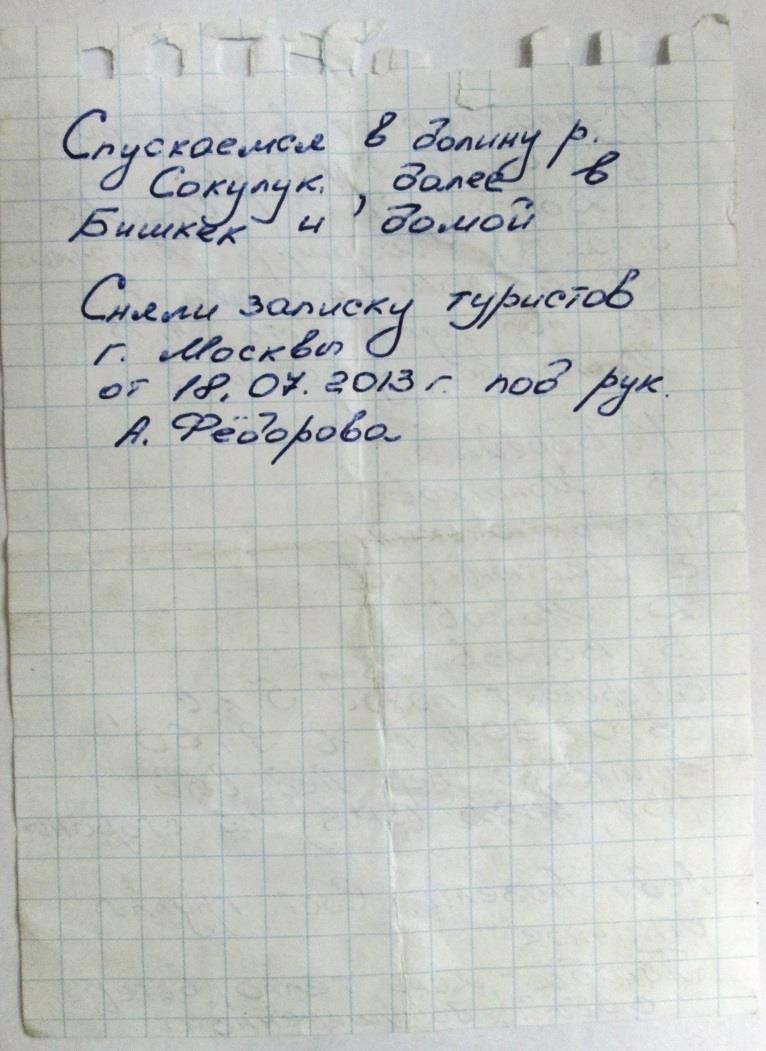 Спускаемся в долину р.
Сокулук, далее в
Бишкек и домой
Сняли записку туристов
г. Москвы
от 18.07.2013 г. под рук.
А. Фёдорова